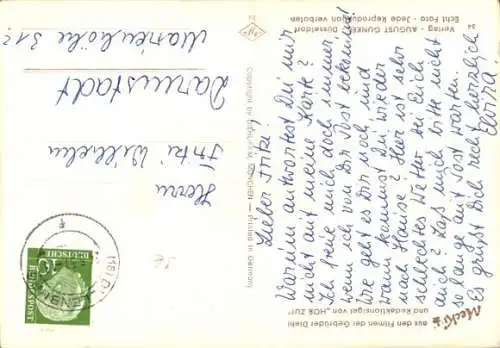 Lieber Fritz!
Warum antwortest Du mir
nicht auf meine Karte?
Ich freue mich doch immer
wenn ich von Dir Post bekomme!
Wie geht es Dir noch und
wann kommst Du wieder
nach Hause? Hier ist sehr
schlechtes Wetter bei Euch
auch? Laß mich bitte nicht
so lange auf Post warten.
Es grüßt Dich recht herzlich
Mecki
aus den Filmen der Gebrüder Diehl
und Redaktionsigel von „HÖR ZU!"
Verlag - AUGUST GUNKEL - Düsseldorf
Echt Foto - Jede Reproduktion verboten
Copyright by DIEHL-FILM, MÜNCHEN — Printed in Germany
Agfa
Herrn
Fritz Wilhelm
Darmstadt
Marienhöhe
10
DEUTSCHE
BUNDESPOST